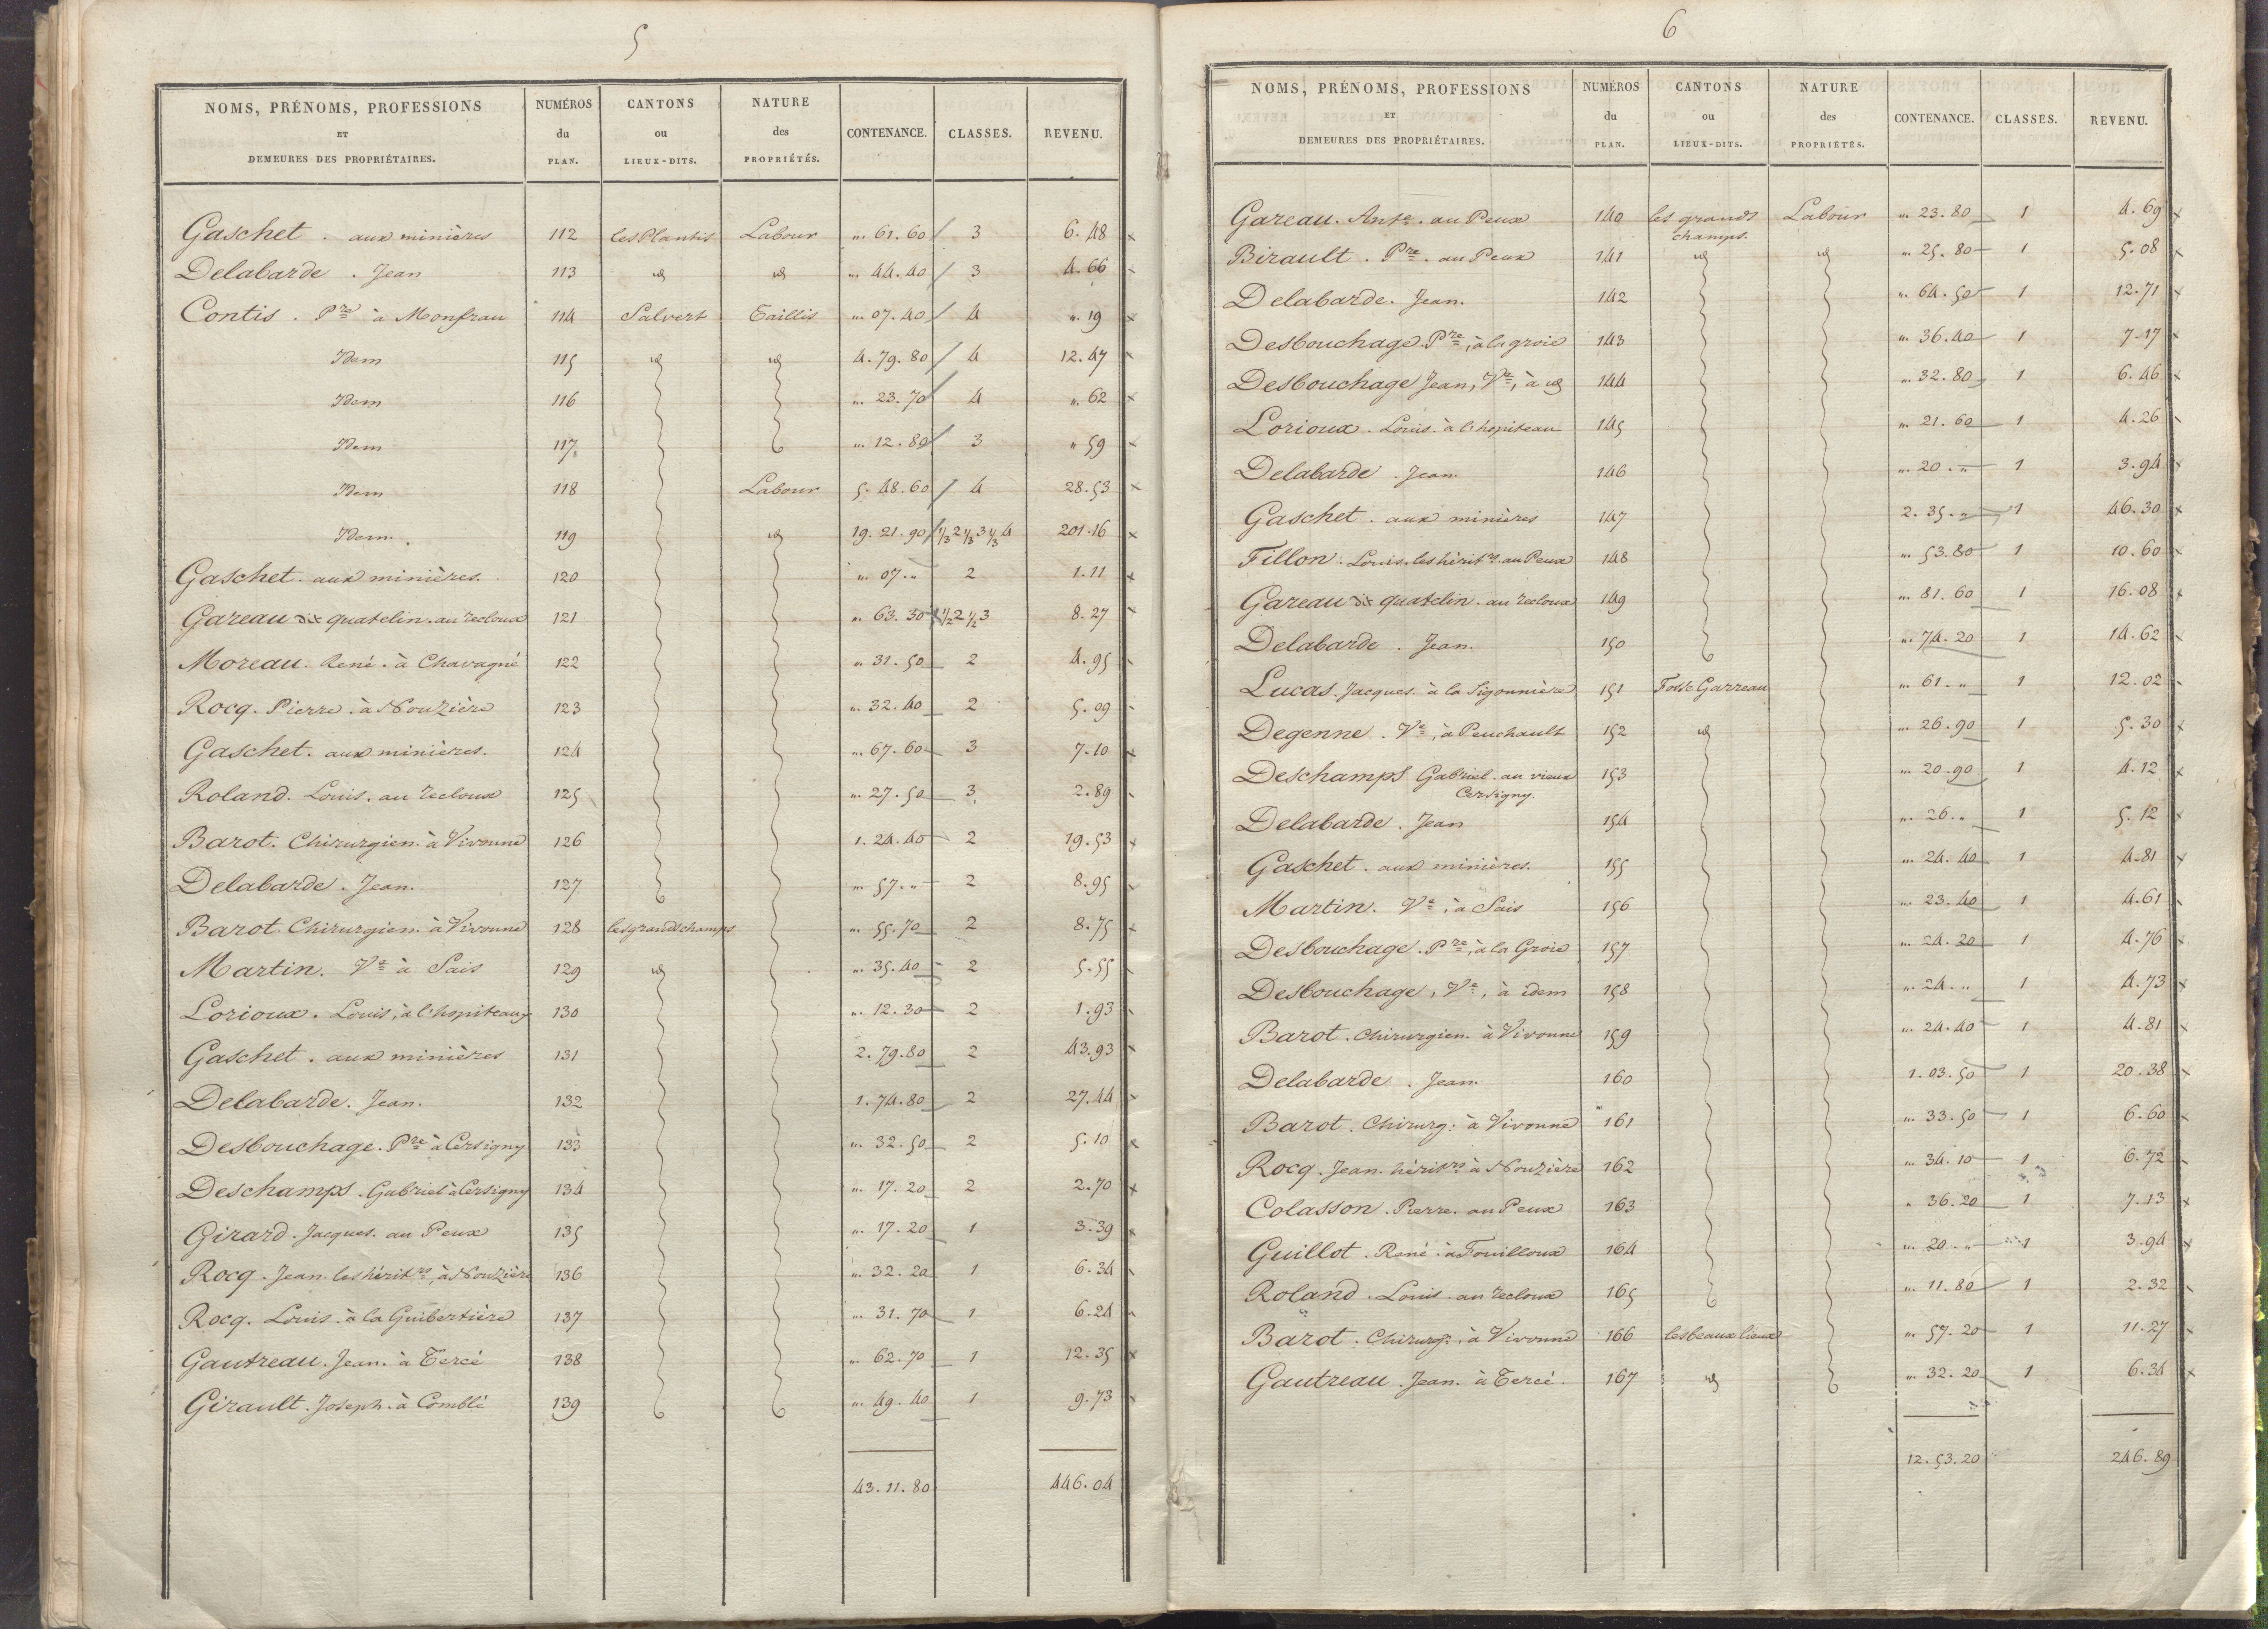 5
NOMS, PRÉNOMS, PROFESSIONS ET DEMEURES DES PROPRIÉTAIRES. NUMÉROS du PLAN. CANTONS ou LIEUX-DITS. NATURE des PROPRIÉTÉS. CONTENANCE. CLASSES. REVENU.
Gaschet . aux minières 112 les Plantis Labour „. 61. 60 3 6. 48
Delabarde . Jean 113 id id „. 44. 40 3 4. 66
Contis . Pre à Monfrau 114 Salvert Taillis „. 07. 40 4 „. 19
Idem 115 id id 4. 79. 80 4 12. 47
Idem 116 „. 23. 70 4 „. 62
Idem 117 „. 12. 80 3 „ 59
Idem 118 Labour 5. 48. 60 4 28. 53
Idem . 119 id 19. 21. 90 1/3 2 1/3 3 1/3 4 201. 16
Gaschet . aux minières. 120 „. 07. „ 2 1. 11
Gareau dit quatelin . au recloux 121 „. 63. 30 1/2 2 1/2 3 8. 27
Moreau . René . à Chavagné 122 „ 31. 50 2 4. 95
Rocq . Pierre . à Nouzière 123 „. 32. 40 2 5. 09
Gaschet . aux minières. 124 „. 67. 60 3 7. 10
Roland . Louis . au recloux 125 „. 27. 50 3 2. 89
Barot . Chirurgien . à Vivonne 126 1. 24. 40 2 19. 53
Delabarde . Jean. 127 „. 57. „ 2 8. 95
Barot . Chirurgien . à Vivonne 128 les grands champs „. 55. 70 2 8. 75
Martin . Ve à Sais 129 id „. 35. 40 2 5. 55
Lorioux . Louis, à l'hopiteaux 130 „. 12. 30 2 1. 93
Gaschet . aux minières 131 2. 79. 80 2 43. 93
Delabarde . Jean. 132 1. 74. 80 2 27. 44
Desbouchage . Pre à Cersigny 133 „. 32. 50 2 5. 10
Deschamps . Gabriel à Cersigny 134 „. 17. 20 2 2. 70
Girard . Jacques . au Peux 135 „. 17. 20 1 3. 39
Rocq . Jean . les héritrs à Nouzière 136 „. 32. 20 1 6. 34
Rocq . Louis . à la Guibertière 137 „. 31. 70 1 6. 24
Gautreau . Jean . à Tercé 138 „. 62. 70 1 12. 35
Girault . Joseph . à Comblé 139 „. 49. 40 1 9. 73
43. 11. 80 446. 04
6
NOMS, PRÉNOMS, PROFESSIONS ET DEMEURES DES PROPRIÉTAIRES. NUMÉROS du PLAN. CANTONS ou LIEUX-DITS. NATURE des PROPRIÉTÉS. CONTENANCE. CLASSES. REVENU.
Gareau . Ante . au Peux 140 les grands champs. Labour „. 23. 80 1 4. 69
Birault . Pre . au Peux 141 id id „. 25. 80 1 5. 08
Delabarde . Jean. 142 „. 64. 50 1 12. 71
Desbouchage . Pre, à la groie 143 „. 36. 40 1 7. 17
Desbouchage Jean, Ve, à id 144 „. 32. 80 1 6. 46
Lorioux . Louis . à l'hopiteau 145 „. 21. 60 1 4. 26
Delabarde . Jean 146 „. 20. „ 1 3. 94
Gaschet . aux minières 147 2. 35. „ 1 46. 30
Fillon . Louis . les héritrs au Peux 148 „. 53. 80 1 10. 60
Gareau dit quatelin . au recloux 149 „. 81. 60 1 16. 08
Delabarde . Jean. 150 „. 74. 20 1 14. 62
Lucas . Jacques . à la Sigonnière 151 Fosse Garreau „. 61. „ 1 12. 02
Degenne . Ve, à Peuchault 152 id „. 26. 90 1 5. 30
Deschamps Gabriel . au vieux Cersigny. 153 „. 20. 90 1 4. 12
Delabarde . Jean 154 „. 26. „ 1 5. 12
Gaschet . aux minières. 155 „. 24. 40 1 4. 81
Martin . Ve, à Sais 156 „. 23. 40 1 4. 61
Desbouchage . Pre, à la Groie 157 „. 24. 20 1 4. 76
Desbouchage, Ve, à idem 158 „. 24. „ 1 4. 73
Barot . Chirurgien . à Vivonne 159 „. 24. 40 1 4. 81
Delabarde . Jean. 160 1. 03. 50 1 20. 38
Barot . Chirurg: à Vivonne 161 „. 33. 50 1 6. 60
Rocq . Jean . héritrs à Nouzière 162 „. 34. 10 1 6. 72
Colasson . Pierre . au Peux 163 „ 36. 20 1 7. 13
Guillot . René . à Fouilloux 164 „. 20. „ 1 3. 94
Roland . Louis . au recloux 165 „. 11. 80 1 2. 32
Barot . Chirurgn. à Vivonne 166 les beaux lieux „. 57. 20 1 11. 27
Gautreau . Jean . à Tercé . 167 id „. 32. 20 1 6. 34
12. 53. 20 246. 89